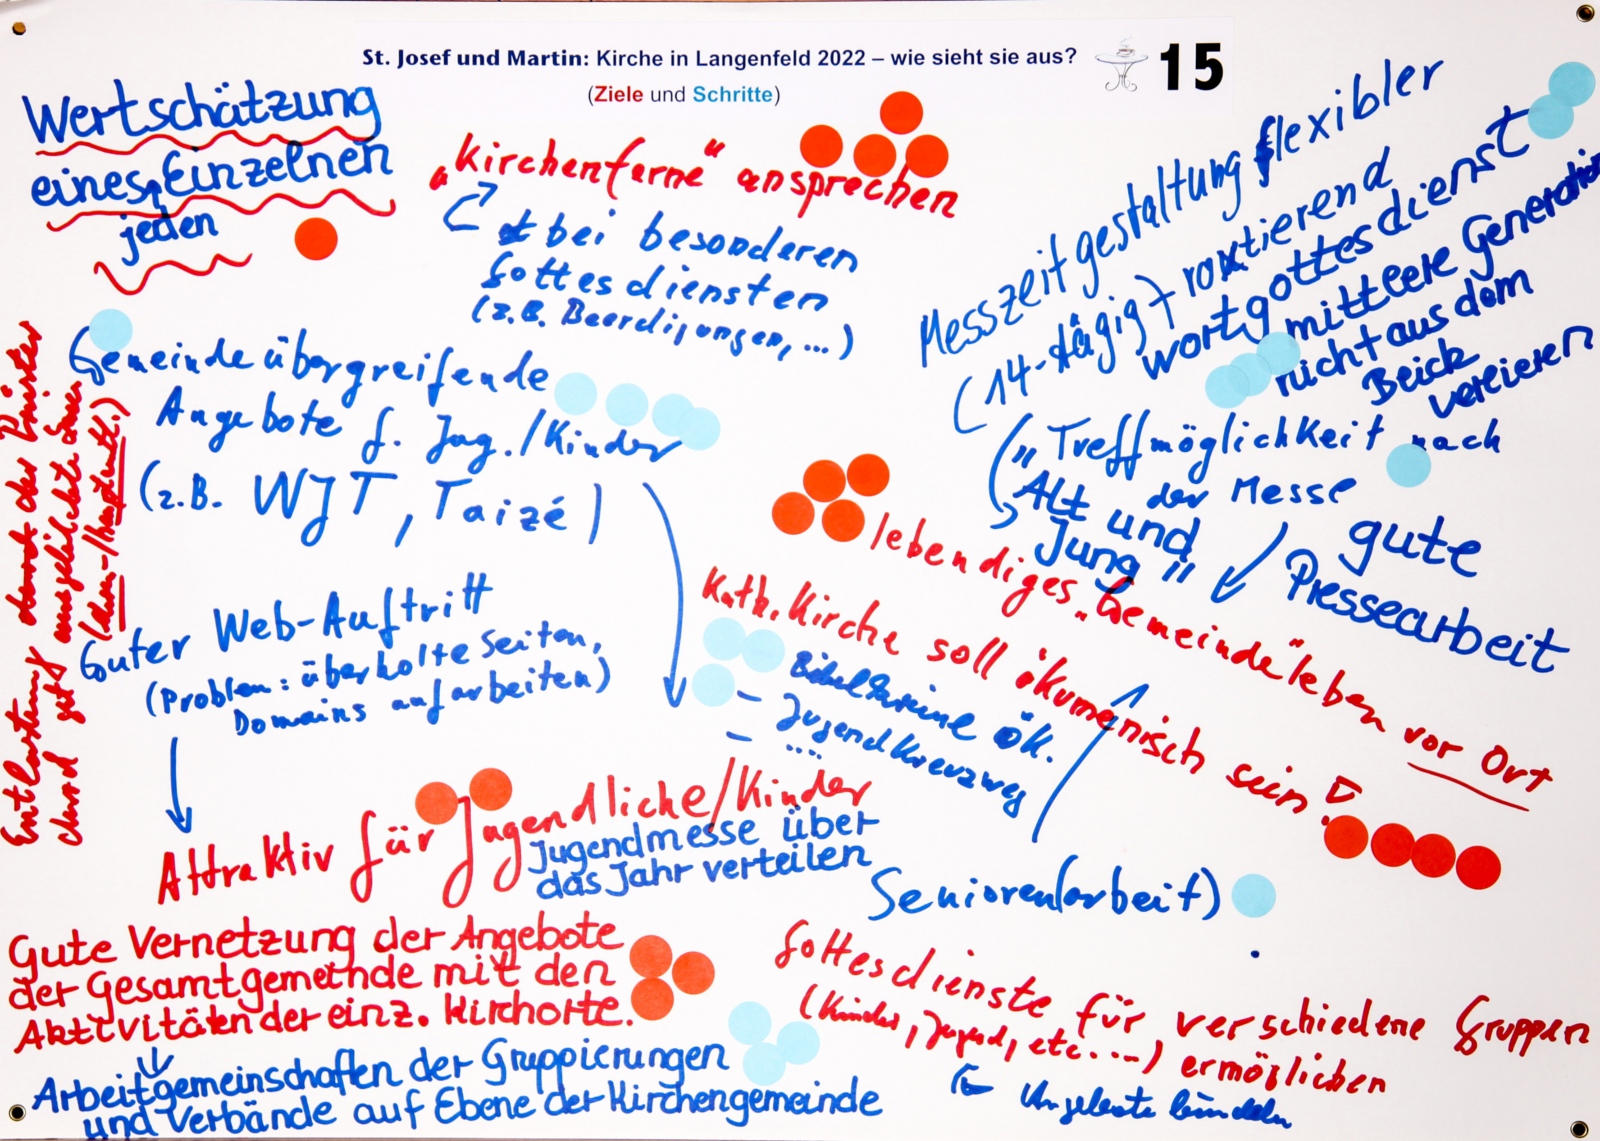 St. Josef und Martin: Kirche in Langenfeld 2022 – wie sieht sie aus?
(Ziele und Schritte)
15
Wertschätzung
eines Einzelnen
jeden
„Kirchenferne" ansprechen
bei besonderen
Gottesdiensten
(z.B. Beerdigungen, ...)
Messzeitgestaltung flexibler
(14-tägig) rotierend
Wortgottesdienst
mittlere Generation
nicht aus dem
Blick
verlieren
Treffmöglichkeit nach
der Messe
"Alt und
Jung"
gute
Pressearbeit
Gemeinde übergreifende
Angebote f. Jug./Kinder
(z.B. WJT, Taizé)
Entlastung der Priester
durch gut ausgebildete
Guter Web-Auftritt
(Problem: überholte Seiten,
Domains aufarbeiten)
lebendiges „Gemeinde"leben vor Ort
Kath. Kirche soll ökumenisch sein!
Bibelkreise ök.
- Jugendkreuzweg
- ...
Attraktiv für Jugendliche/Kinder
Jugendmesse über
das Jahr verteilen
Senioren(arbeit)
Gute Vernetzung der Angebote
der Gesamtgemeinde mit den
Aktivitäten der einz. Kirchorte.
Arbeitgemeinschaften der Gruppierungen
und Verbände auf Ebene der Kirchengemeinde
Gottesdienste für verschiedene Gruppen
(Kinder, Jugend, etc....) ermöglichen
Angebote bündeln